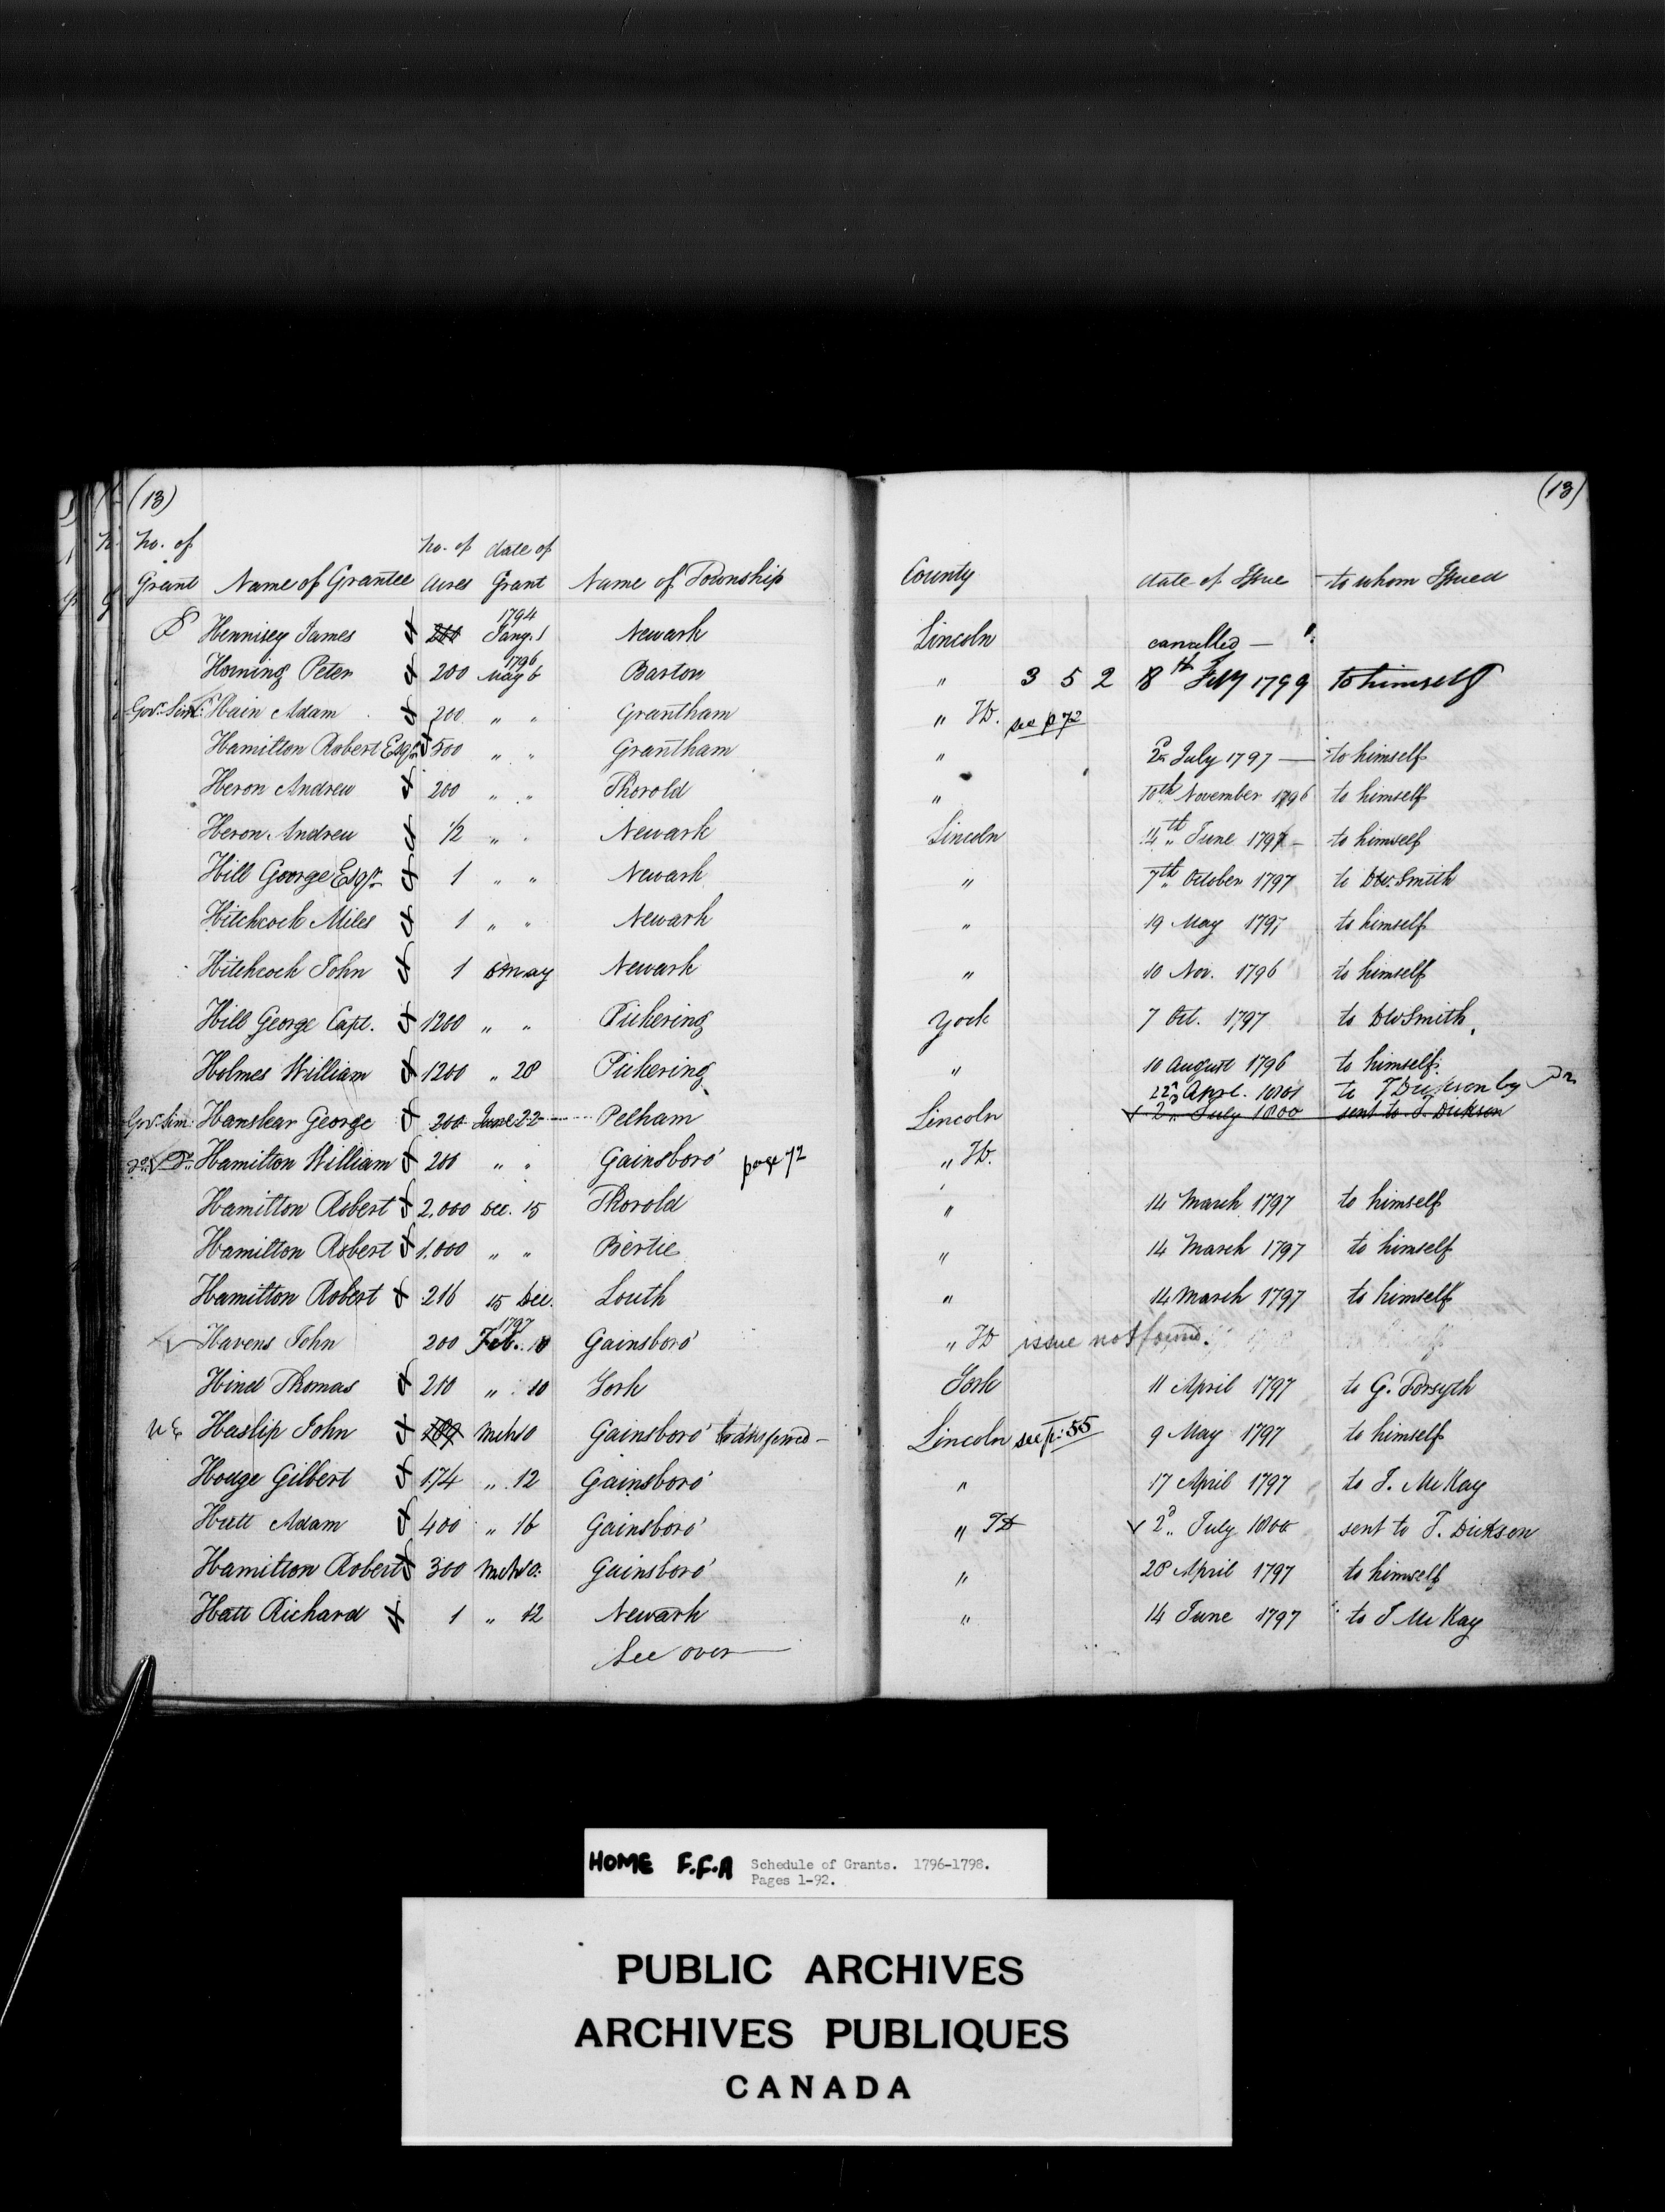 (13) (13)
No. of No. of date of
Grant Name of Grantee Acres Grant Name of Township County date of Issue to whom Issued
1794
Hennisey James 200 Jany. 1 Newark Lincoln cancelled —
1796
Horning Peter 200 May 6 Barton " 3 5 2 8th Feby 1799 to himself
Govr. Sim: Hain Adam 200 " " Grantham " HD. see p 72
Hamilton Robert Esqr. 500 " " Grantham " 2d July 1797 — to himself
Heron Andrew 200 " " Thorold " 10th November 1796 to himself
Heron Andrew 1/2 " " Newark Lincoln 14th June 1797 – to himself
Hill George Esqr. 1 " " Newark " 7th October 1797 to DW. Smith
Hitchcock Miles 1 " " Newark " 19 May 1797 to himself
Hitchcock John 1 6 May Newark " 10 Nov. 1796 to himself
Hill George Capt. 1200 " " Pickering York 7 Oct. 1797 to DW Smith
Holmes William 1200 " 28 Pickering " 10 August 1796 to himself
22d Apl. 1801 to T Dickson by
Govr. Sim: Hanslear George 200 June 22 Pelham Lincoln 2d July 1800 sent to T. Dickson
do. Do. Hamilton William 200 " " Gainsboro' page 72 " HD.
Hamilton Robert 2,000 Dec. 15 Thorold " 14 March 1797 to himself
Hamilton Robert 1,000 " " Bertie " 14 March 1797 to himself
Hamilton Robert 216 15 Dec. Louth " 14 March 1797 to himself
1797
Havens John 200 Feb. 10 Gainsboro' " HD issue not found.
Hind Thomas 210 " 10 York York 11 April 1797 to G. Forsyth
Haslip John 189 Mch 10 Gainsboro' transferred – Lincoln see p: 55 9 May 1797 to himself
Hodge Gilbert 174 " 12 Gainsboro' " 17 April 1797 to J. McKay
Hutt Adam 400 " 16 Gainsboro' " HD 2d July 1800 sent to T. Dickson
Hamilton Robert 300 Mch 10. Gainsboro' " 28 April 1797 to himself
Hatt Richard 1 " 12 Newark " 14 June 1797 to J McKay
See over
HOME F.F.A Schedule of Grants. 1796-1798.
Pages 1-92.
PUBLIC ARCHIVES
ARCHIVES PUBLIQUES
CANADA